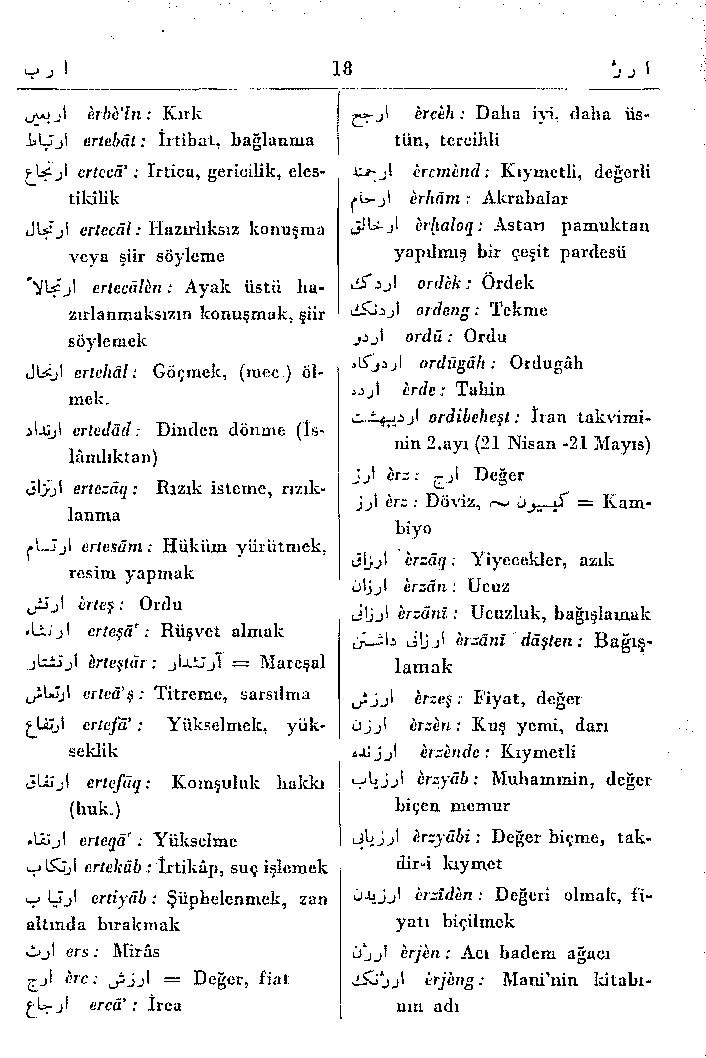 ا ر ب 18 ا ر ژ
اربعین èrbè'în : Kırk
ارتباط ertebāt : İrtibat, bağlanma
ارتجاع ertecā' : İrtica, gericilik, eles-
tikîlik
ارتجال ertecāl : Hazırlıksız konuşma
veya şiir söyleme
ارتجالاً ertecālèn : Ayak üstü ha-
zırlanmaksızın konuşmak, şiir
söylemek
ارتحال ertehāl : Göçmek, (mec.) öl-
mek.
ارتداد ertedād : Dinden dönme (İs-
lâmlıktan)
ارتزاق ertezāq : Rızık isteme, rızık-
lanma
ارتسام ertesām : Hüküm yürütmek,
resim yapmak
ارتش èrteş : Ordu
ارتشاء erteşā' : Rüşvet almak
ارتشتار èrteştār : آرتشدار = Mareşal
ارتعاش erteā'ş : Titreme, sarsılma
ارتفاع ertefā' : Yükselmek, yük-
seklik
ارتفاق ertefāq : Komşuluk hakkı
(huk.)
ارتقاء erteqā' : Yükselme
ارتكاب ertekāb : İrtikâp, suç işlemek
ارتياب ertiyāb : Şüphelenmek, zan
altında bırakmak
ارث ers : Mirâs
ارج èrc : ارزش = Değer, fiat
ارجاع ercā' : İrca
ارجح èrcèh : Daha iyi, daha üs-
tün, tercihli
ارجمند èrcmènd : Kıymetli, değerli
ارحام èrhām : Akrabalar
ارخالق èrhaloq : Astarı pamuktan
yapılmış bir çeşit pardesü
اردك ordèk : Ördek
اردنگ ordeng : Tekme
اردو ordū : Ordu
اردوگاه ordūgāh : Ordugâh
ارده èrde : Tahin
ارديبهشت ordibeheşt : İran takvimi-
nin 2.ayı (21 Nisan -21 Mayıs)
ارز èrz : ارج Değer
ارز èrz : Döviz, كمبيون = Kam-
biyo
ارزاق èrzāq : Yiyecekler, azık
ارزان èrzān : Ucuz
ارزانى èrzānī : Ucuzluk, bağışlamak
ارزانى داشتن èrzānī dāşten : Bağış-
lamak
ارزش èrzeş : Fiyat, değer
ارزن èrzèn : Kuş yemi, darı
ارزنده èrzènde : Kıymetli
ارزياب èrzyāb : Muhammin, değer
biçen memur
ارزيابى èrzyābi : Değer biçme, tak-
dir-i kıymet
ارزيدن èrzīdèn : Değeri olmak, fi-
yatı biçilmek
ارژن èrjèn : Acı badem ağacı
ارژنگ èrjèng : Mani'nin kitabı-
nın adı